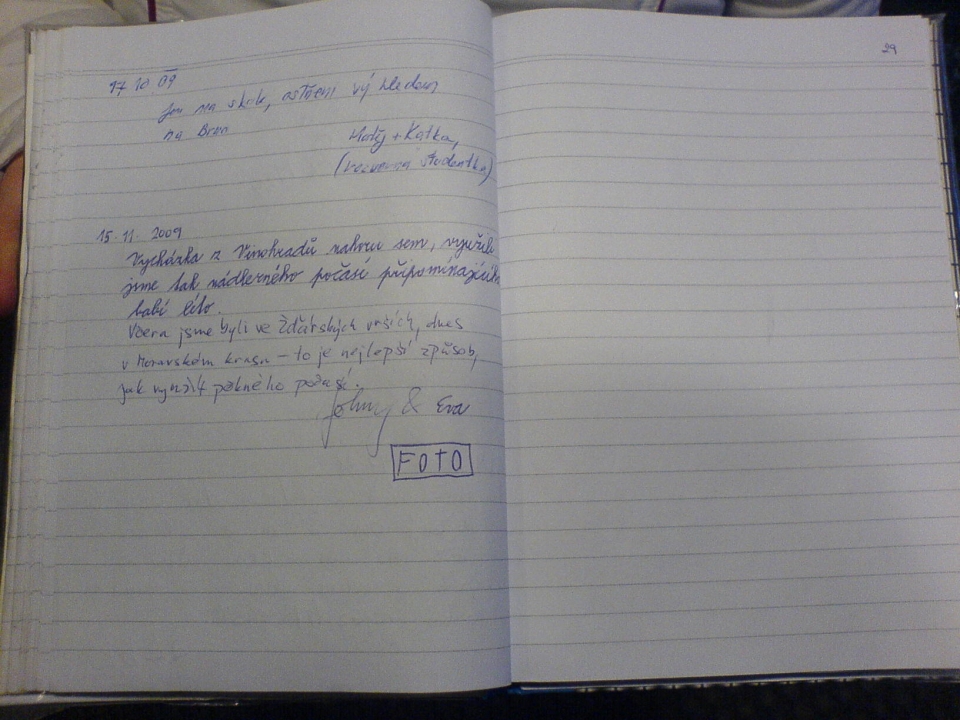 29
17 10 09
Jen na skok,
na Brno
Matěj + Katka,
studentka)
15. 11. 2009
Vycházka z Vinohradů nahoru sem, využili
jsme tak nádherného počasí připomínajícího
babí léto.
Včera jsme byli ve Žďárských vrších, dnes
v Moravském krasu – to je nejlepší způsob,
jak využít pěkného počasí.
Johny & Eva
FOTO